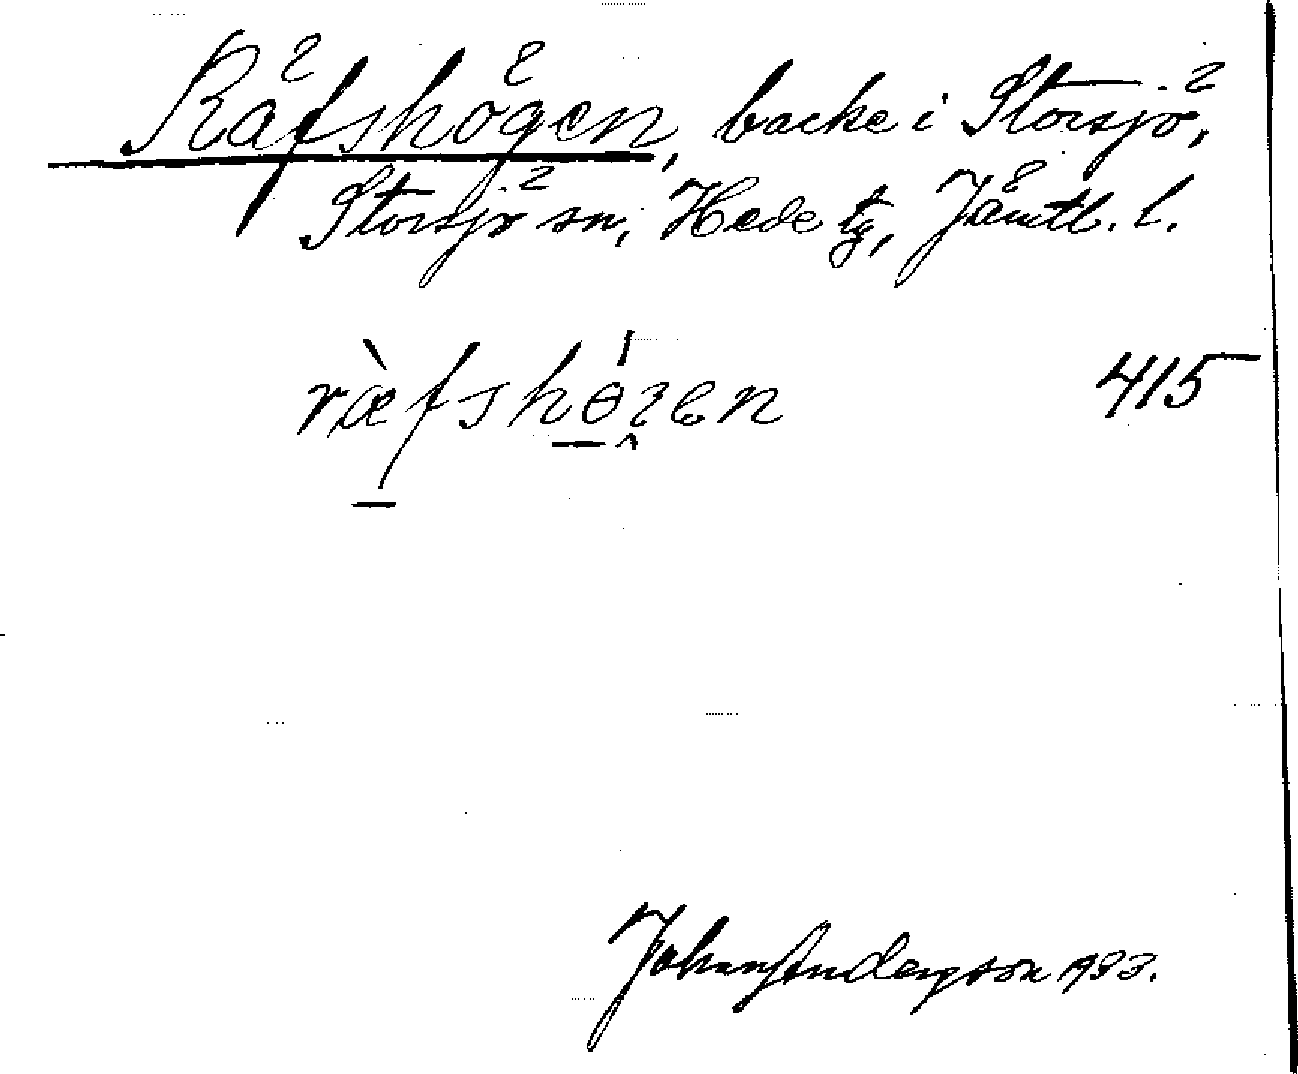 Räfshögen, backe i Storsjö,
Storsjö sn, Hede tg, Jämtl. l.
ræ̀fshɵ́ɂen 415
Johan Andersson 1933.